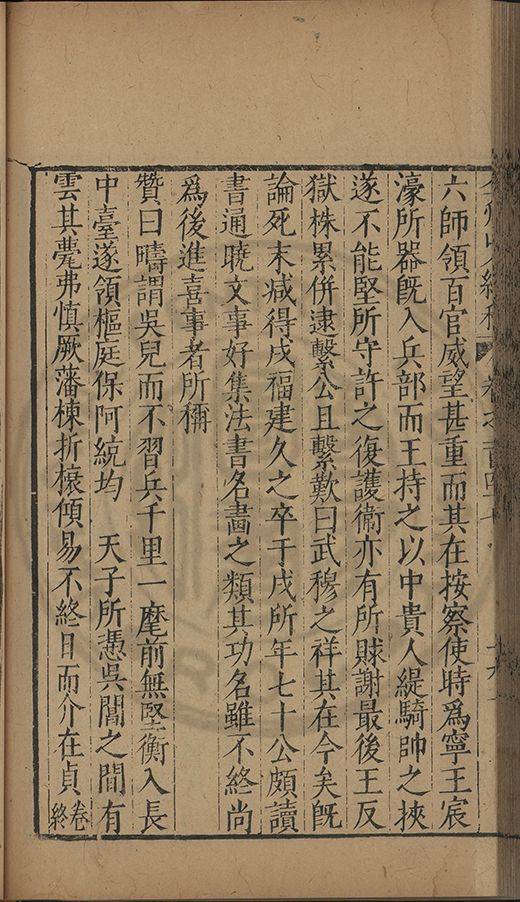 六師領百官威望甚重而其在按察使時爲寧王宸
濠所器旣入兵部而王持之以中貴人緹騎帥之挾
遂不能堅所守許之復護衞亦有所賕謝最後王反
獄株累併逮繫公且繫歎曰武穆之祥其在今矣旣
論死末减得戍福建久之卒于戍所年七十公頗讀
書通曉文事好集法書名畵之類其功名雖不終尚
爲後進喜事者所稱
贊曰疇謂吳兒而不習兵千里一麾前無堅衡入長
中臺遂領樞庭保阿統均 天子所憑吳閶之間有
雲其甍弗慎厥藩棟折榱傾易不終日而介在貞
卷終